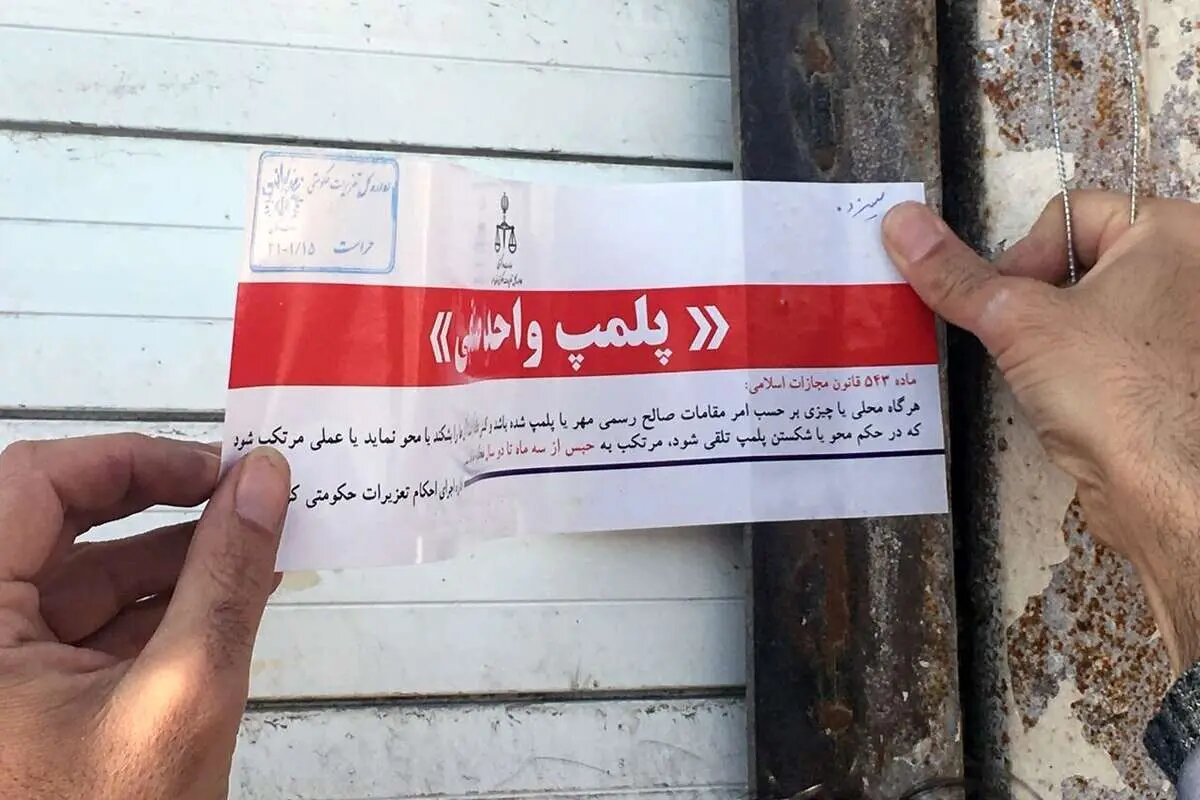 اداره کل تعزیرات حکومتی
حراست
« پلمپ واحد صنفی »
ماده ۵۴۳ قانون مجازات اسلامی:
هرگاه محلی یا چیزی بر حسب امر مقامات صالح رسمی مهر یا پلمپ شده باشد و کسی را بشکند یا محو نماید یا عملی مرتکب شود
که در حکم محو یا شکستن پلمپ تلقی شود، مرتکب به حبس از سه ماه تا دو سال
اجرای احکام تعزیرات حکومتی